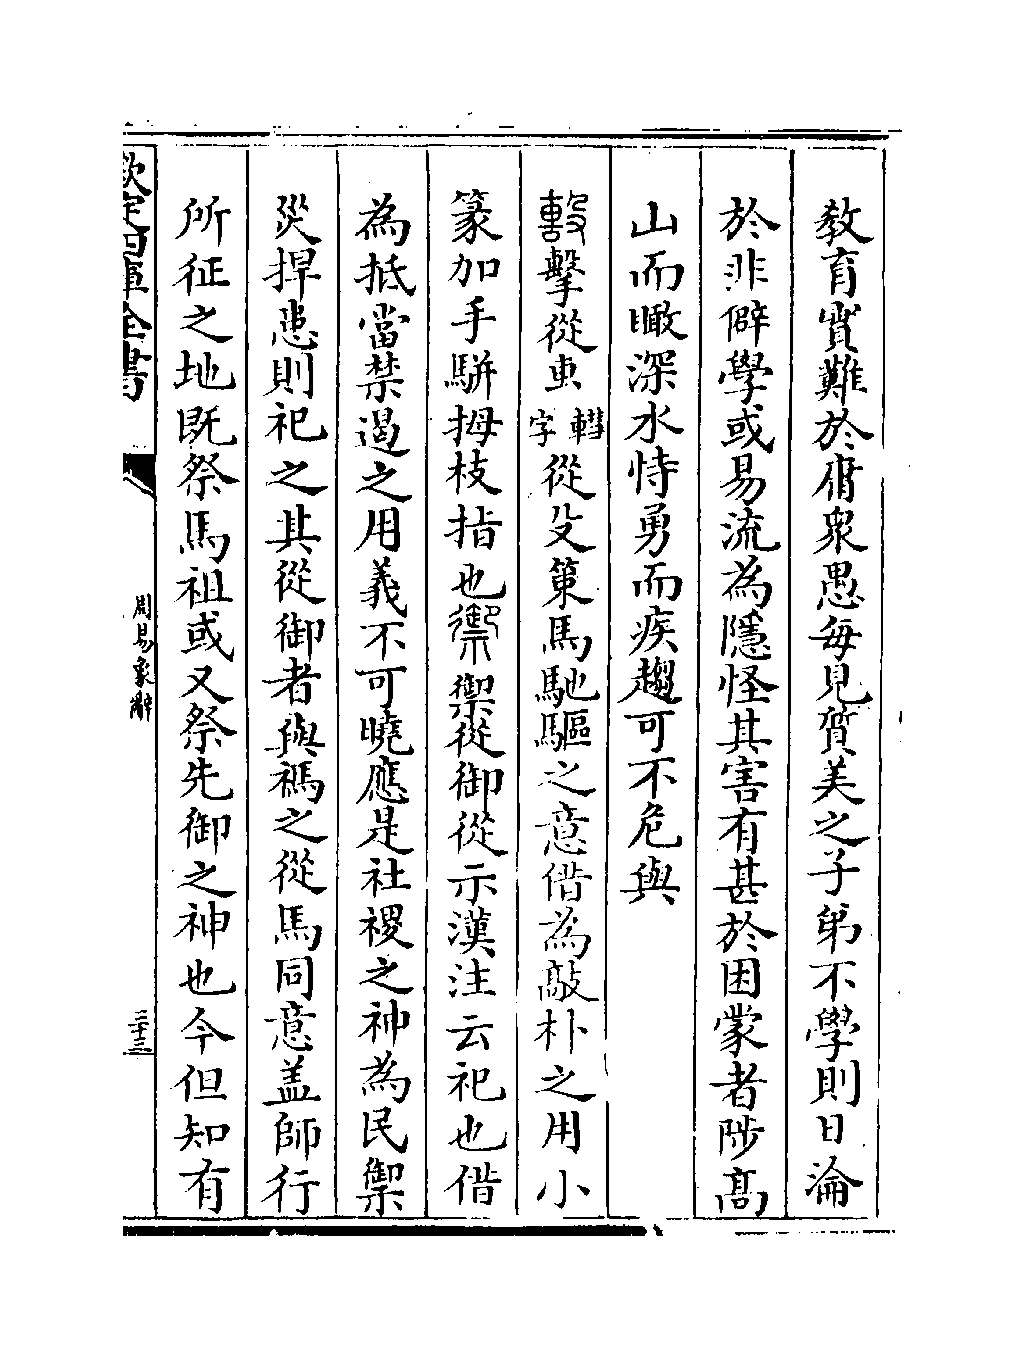 教育實難於庸衆愚每見質美之子弟不學則日淪
於非僻學或易流為隱怪其害有甚於困蒙者陟髙
山而瞰深水恃勇而疾趨可不危與
擊從軎轊字從殳策馬馳驅之意借為敲朴之用小
篆加手駢拇枝指也禦從御從示漢注云祀也借
為抵當禁遏之用義不可曉應是社稷之神為民禦
災捍患則祀之其從御者與禡之從馬同意盖師行
所征之地既祭馬祖或又祭先御之神也今但知有
欽定四庫全書
周易象辭
三十三